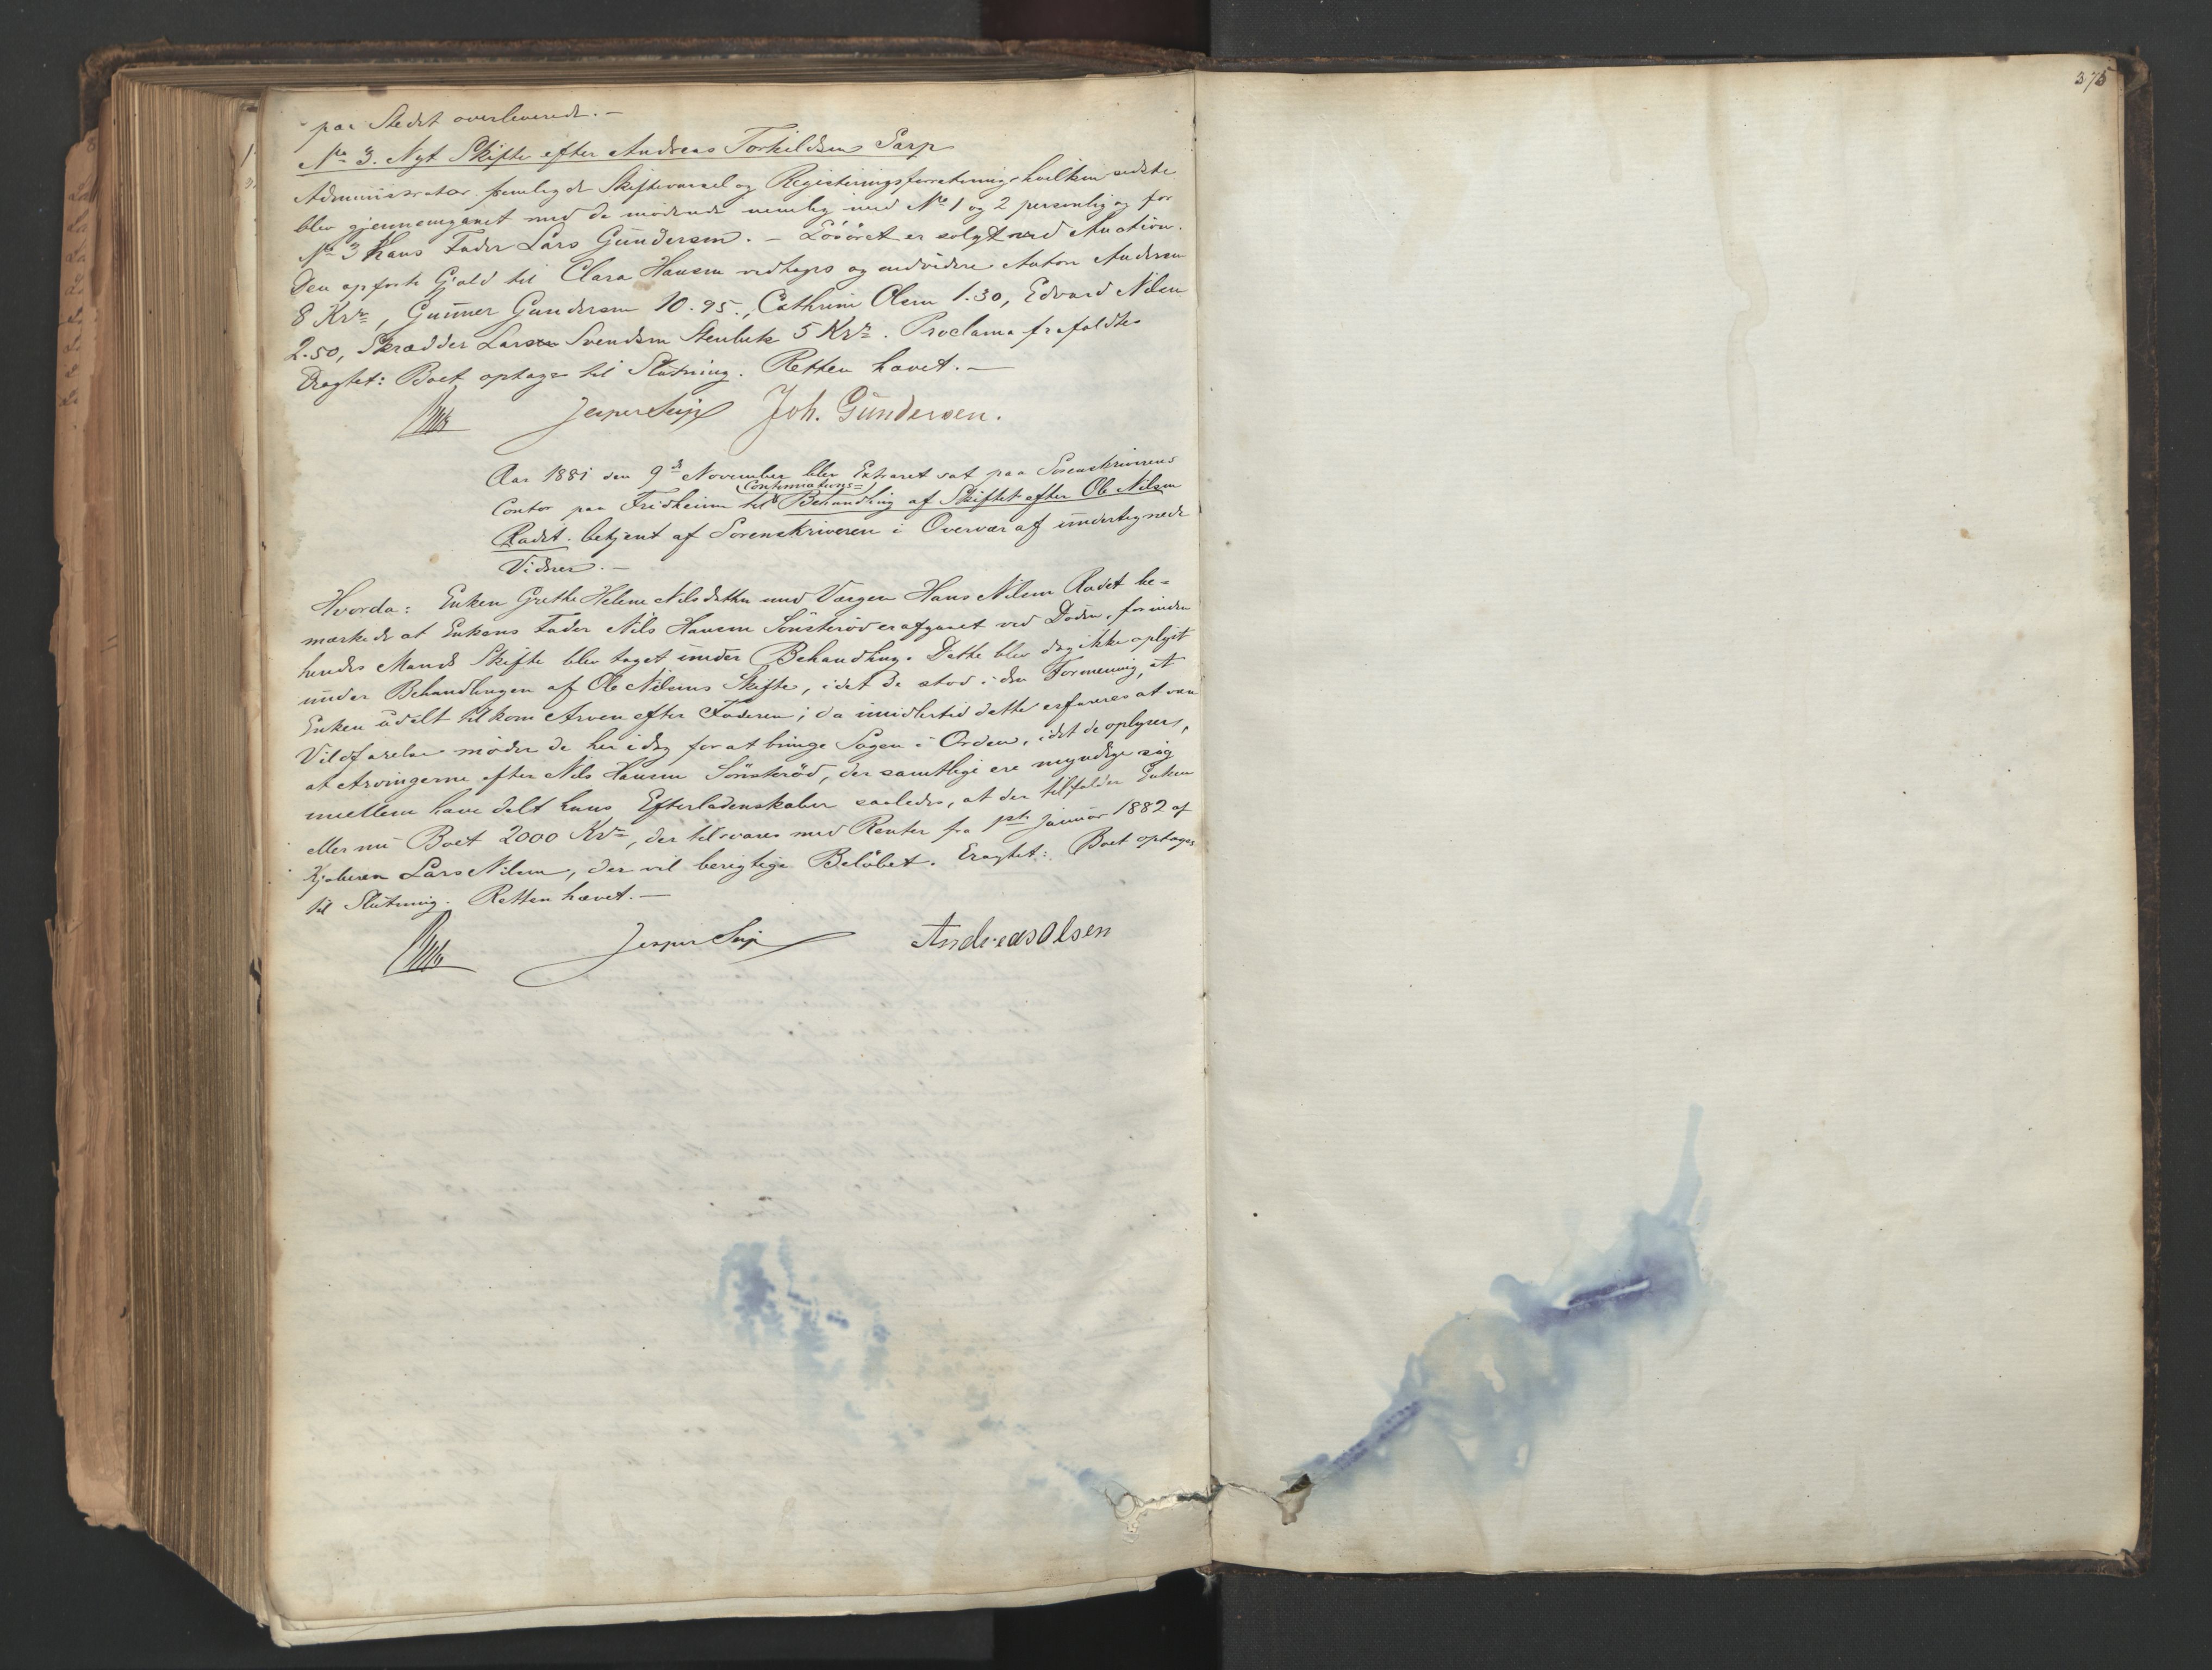 paa Stedet overleveret. –
No 3. Nyt Skifte efter Andreas Torkildsen Sarp
Administrator fremlagde Skiftevarsel og Registeringsforretning, hvilken sidste
blev gjennemgaaet med de mødende nemlig med No 1 og 2 personlig og for
No 3 Hans Fader Lars Gundersen. – Løsøret er solgt ved Auction.
Den opførte Gjæld til Clara Hansen vedtages og endvidere Anton Andersen
8 Kr, Gunner Gundersen 10.95., Cathrine Olsen 1.30, Edvard Nilsen
2.50, Skrædder Lars Svendsen Stenbæk 5 Kr. Proclama frafaldtes
Eragtet: Boet optages til Slutning. Retten hævet. –
Jesper Seip Joh. Gundersen.
Aar 1881 den 9de November blev Extraret sat paa Sorenskriverens
Contor paa Fridheim til Continuations=
Behandling af Skiftet efter Ole Nilsen
Rødit. betjent af Sorenskriveren i Overvær af undertegnede
Vidner. –
Hvorda: Enken Grethe Helene Nilsdatter med Værgen Hans Nilsen Rødet be=
mærkede at Enkens Fader Nils Hansen Sønsterød er afgaaet ved Døden, forinden
hendes Mands Skifte blev taget under Behandling. Dette blev dog ikke oplyst
under Behandlingen af Ole Nilsens Skifte, idet de stod i den Formening, at
Enken udelt tilkom Arven efter Faderen; da imidlertid dette erfares at være
Vildfarelse møder de her idag for at bringe Sagen i Orden, idet de oplyser,
at Arvingerne efter Nils Hansen Sønsterød, der samtlige ere myndige sig
imellem have delt hans Efterladenskaber saaledes, at der tilfalder Enken
eller nu Boet 2000 Kr, der tilsvares med Renter fra 1ste Januar 1882 af
Kjøberen Lars Nilsen, der vil berigtige Beløbet. Eragtet: Boet optages
til Slutning. Retten hævet. –
Jesper Seip Andreas Olsen
375